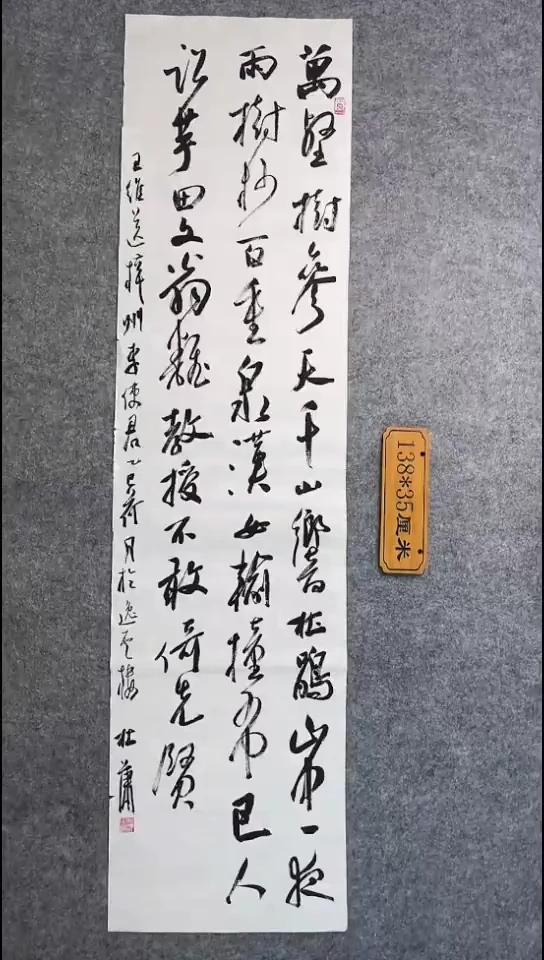 萬壑樹參天千山響杜鵑山中一夜
雨樹杪百重泉漢女輸橦布巴人
訟芋田文翁飜教授不敢倚先賢
王維送梓州李使君乙巳荷月於逸雲樓杜蕭
138*35厘米